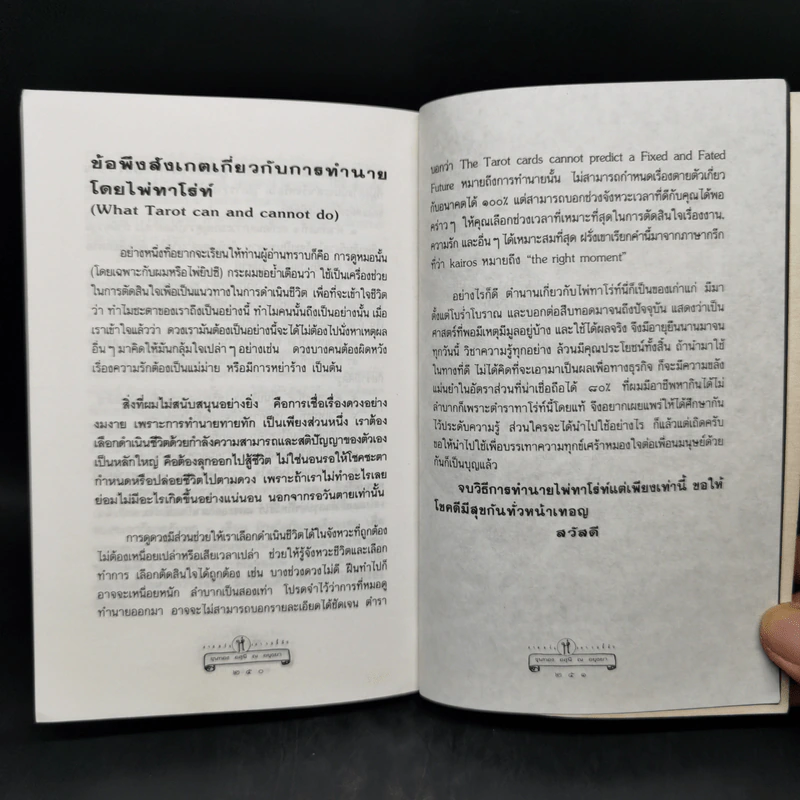 ข้อพึงสังเกตเกี่ยวกับการทำนาย
โดยไพ่ทาโร่ท์
(What Tarot can and cannot do)
อย่างหนึ่งที่อยากจะเรียนให้ท่านผู้อ่านทราบก็คือ การดูหมอนั้น
(โดยเฉพาะกับผมหรือไพ่ยิปซี) กระผมขอย้ำเตือนว่า ใช้เป็นเครื่องช่วย
ในการตัดสินใจเพื่อเป็นแนวทางในการดำเนินชีวิต เพื่อที่จะเข้าใจชีวิต
ว่า ทำไมชะตาของเราถึงเป็นอย่างนี้ ทำไมคนนั้นถึงเป็นอย่างนั้น เมื่อ
เราเข้าใจแล้วว่า ดวงเรามันต้องเป็นอย่างนี้จะได้ไม่ต้องไปนั่งหาเหตุผล
อื่นๆ มาคิดให้มันกลุ้มใจเปล่าๆ อย่างเช่น ดวงบางคนต้องผิดหวัง
เรื่องความรักต้องเป็นแม่ม่าย หรือมีการหย่าร้าง เป็นต้น
สิ่งที่ผมไม่สนับสนุนอย่างยิ่ง คือการเชื่อเรื่องดวงอย่าง
งมงาย เพราะการทำนายทายทัก เป็นเพียงส่วนหนึ่ง เราต้อง
เลือกดำเนินชีวิตด้วยกำลังความสามารถและสติปัญญาของตัวเอง
เป็นหลักใหญ่ คือต้องลุกออกไปสู้ชีวิต ไม่ใช่นอนรอให้โชคชะตา
กำหนดหรือปล่อยชีวิตไปตามดวง เพราะถ้าเราไม่ทำอะไรเลย
ย่อมไม่มีอะไรเกิดขึ้นอย่างแน่นอน นอกจากรอวันตายเท่านั้น
การดูดวงมีส่วนช่วยให้เราเลือกดำเนินชีวิตได้ในจังหวะที่ถูกต้อง
ไม่ต้องเหนื่อยเปล่าหรือเสียเวลาเปล่า ช่วยให้รู้จังหวะชีวิตและเลือก
ทำการ เลือกตัดสินใจได้ถูกต้อง เช่น บางช่วงดวงไม่ดี ฝืนทำไปก็
อาจจะเหนื่อยหนัก ลำบากเป็นสองเท่า โปรดจำไว้ว่าการที่หมอดู
ทำนายออกมา อาจจะไม่สามารถบอกรายละเอียดได้ชัดเจน ตำรา
๒๕๐
บอกว่า The Tarot cards cannot predict a Fixed and Fated
Future หมายถึงการทำนายนั้น ไม่สามารถกำหนดเรื่องตายตัวเกี่ยว
กับอนาคตได้ ๑๐๐% แต่สามารถบอกช่วงจังหวะเวลาที่ดีกับคุณได้พอ
คร่าวๆ ให้คุณเลือกช่วงเวลาที่เหมาะที่สุดในการตัดสินใจเรื่องงาน,
ความรัก และอื่นๆ ได้เหมาะสมที่สุด ฝรั่งเขาเรียกคำนี้มาจากภาษากรีก
ที่ว่า kairos หมายถึง “the right moment”
อย่างไรก็ดี ตำนานเกี่ยวกับไพ่ทาโร่ท์นี้ก็เป็นของเก่าแก่ มีมา
ตั้งแต่โบร่ำโบราณ และบอกต่อสืบทอดมาจนถึงปัจจุบัน แสดงว่าเป็น
ศาสตร์ที่พอมีเหตุมีมูลอยู่บ้าง และใช้ได้ผลจริง จึงมีอายุยืนนานมาจน
ทุกวันนี้ วิชาความรู้ทุกอย่าง ล้วนมีคุณประโยชน์ทั้งสิ้น ถ้านำมาใช้
ในทางที่ดี ไม่ได้คิดที่จะเอามาเป็นผลเพื่อทางธุรกิจ ก็จะมีความขลัง
แม่นยำในอัตราส่วนที่น่าเชื่อถือได้ ๘๐% ที่ผมมีอาชีพหากินได้ไม่
ลำบากก็เพราะตำราทาโร่ท์นี้โดยแท้ จึงอยากเผยแพร่ให้ได้ศึกษากัน
ไว้ประดับความรู้ ส่วนใครจะได้นำไปใช้อย่างไร ก็แล้วแต่เถิดครับ
ขอให้นำไปใช้เพื่อบรรเทาความทุกข์เศร้าหมองใจต่อเพื่อนมนุษย์ด้วย
กันก็เป็นบุญแล้ว
จบวิธีการทำนายไพ่ทาโร่ท์แต่เพียงเท่านี้ ขอให้
โชคดีมีสุขกันทั่วหน้าเทอญ
สวัสดี
๒๕๑